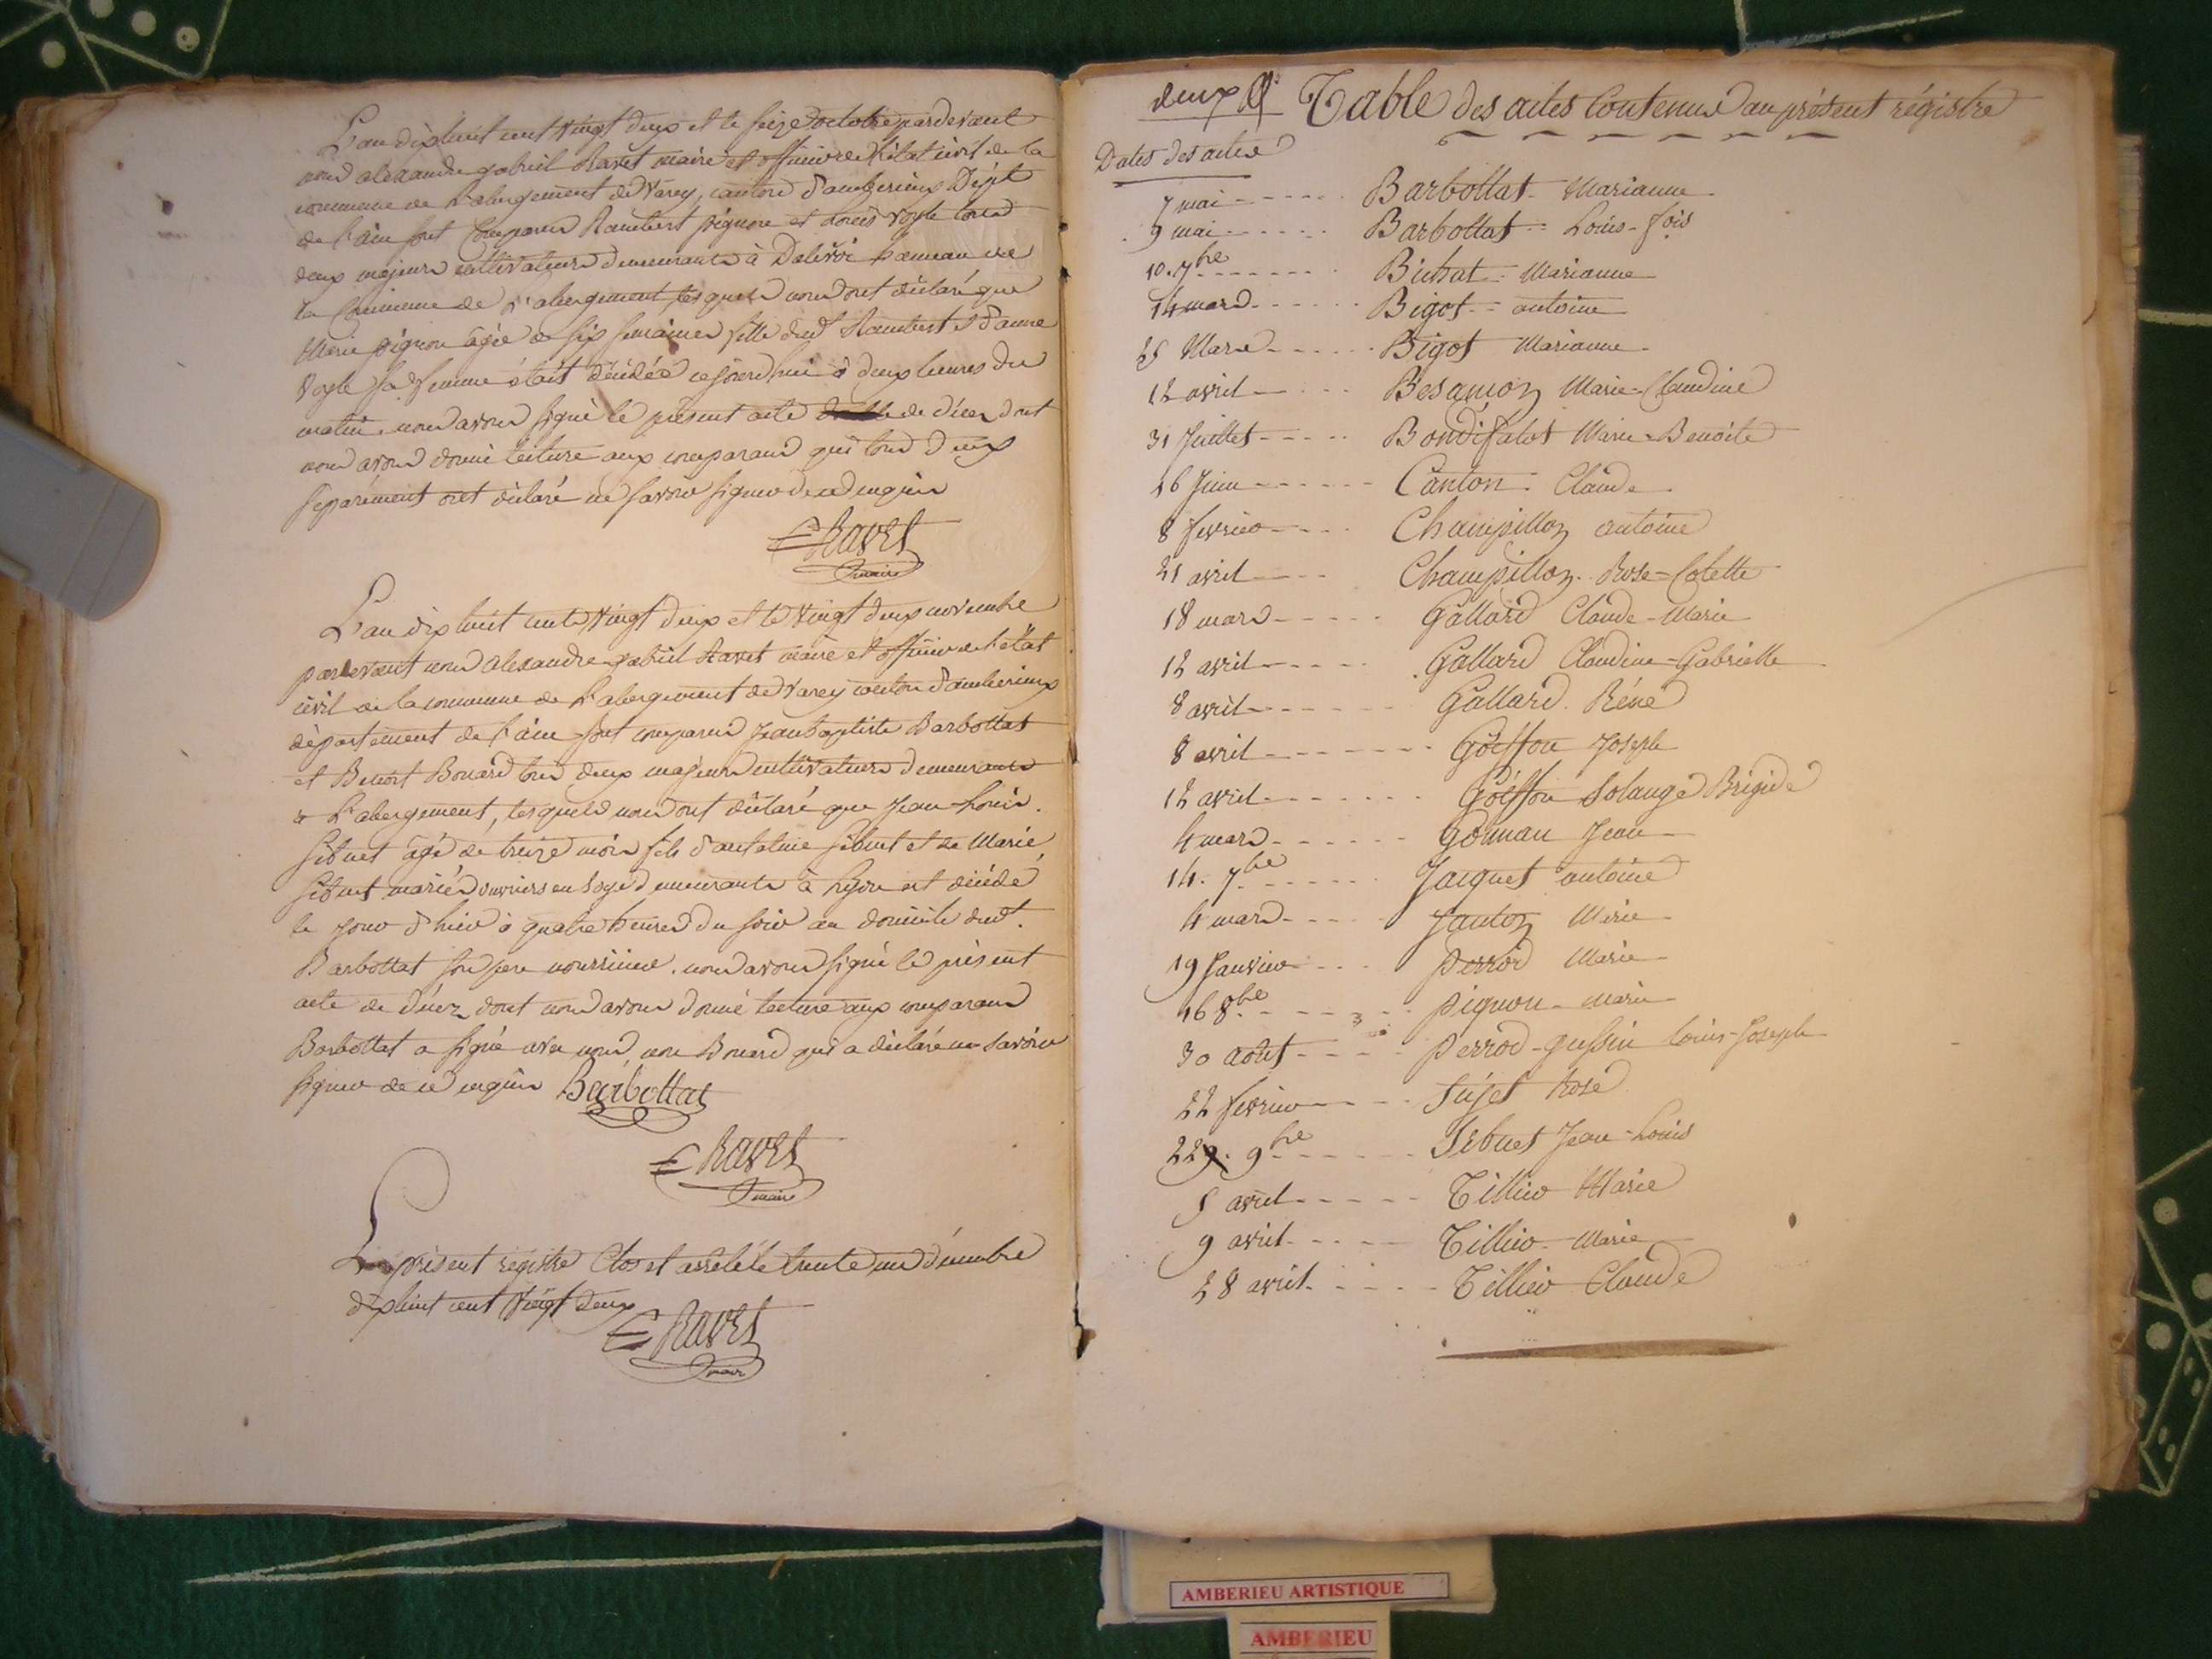 L'an dix huit cent vingt deux et le seize octobre pardevant
nous alexandre gabriel Ravet maire et officier de l'état civil de la
commune de L'abergement de Varey, canton d'amberieux Dépt
de l'ain sont Comparus Rambert pignon et Louis Vogle tous
deux majeurs cultivateurs demeurants à Dalivoi hameau de
la Commune de L'abergement, lesquels nous ont déclaré que
Marie pignon âgée de six semaines fille dud Rambert & d'anne
Vogle sa femme était décédée cejourd'hui à deux heures du
matin. nous avons signé le présent acte de décès dont
nous avons donné lecture aux comparans qui tous deux
séparément ont déclaré ne savoir signer de ce enquis
Ravet
maire
L'an dix huit cents vingt deux et le vingt deux novembre
pardevant nous alexandre gabriel Ravet maire et officier de l'état
civil de la commune de L'abergement de Varey canton d'amberieux
département de l'ain sont comparus Jean baptiste Barbottat
et Benoit Bouard tous deux majeurs cultivateurs demeurants
à L'abergement, lesquels nous ont déclaré que Jean Louis
Sibuet âgé de treize mois fils d'antelme Sibuet et de Marie
Sibuet mariés ouvriers en Soye demeurants à Lyon est décédé
le jour d'hier à quatre heures du soir au domicile dudt.
Barbottat son père nourricier. nous avons signé le présent
acte de décès dont nous avons donné lecture aux comparans
Barbottat a signé avec nous, non Bouard qui a déclaré ne savoir
signer de ce enquis Barbottat
Ravet
maire
Le présent registre Clos et arrêté le trente un décembre
dix huit cent vingt deux
Ravet
maire
deux Table des actes Contenus au présent régistre
Dates des actes
7 mai Barbottat Marianne
9 mai Barbottat Louis-fois
10. 7bre Bichat Marianne
14 mars Bigot antoine
25 Mars Bigot Marianne
12 avril Besançon Marie-Claudine
31 Juillet Bondifalot Marie-Benoite
26 Juin Canton Claude
8 fevrier Champillon antoine
21 avril Champillon Rose-Colette
18 mars Gallard Claude-Marie
12 avril Gallard Claudine-Gabrielle
8 avril Gallard Réné
8 avril Goiffon Joseph
12 avril Goiffon Solange Brigide
4 mars Gourmau Jean
14. 7bre Jacquet antoine
4 mars Janton Marie
19 Janvier perrod Marie
16 8bre pignon marie
30 août perrod-gussin Louis-Joseph
22 fevrier Sujet Rose
22 9bre Sibuet Jean-Louis
5 avril Tillier Marie
9 avril Tillier Marie
28 avril Tillier Claude
AMBERIEU ARTISTIQUE
AMBERIEU